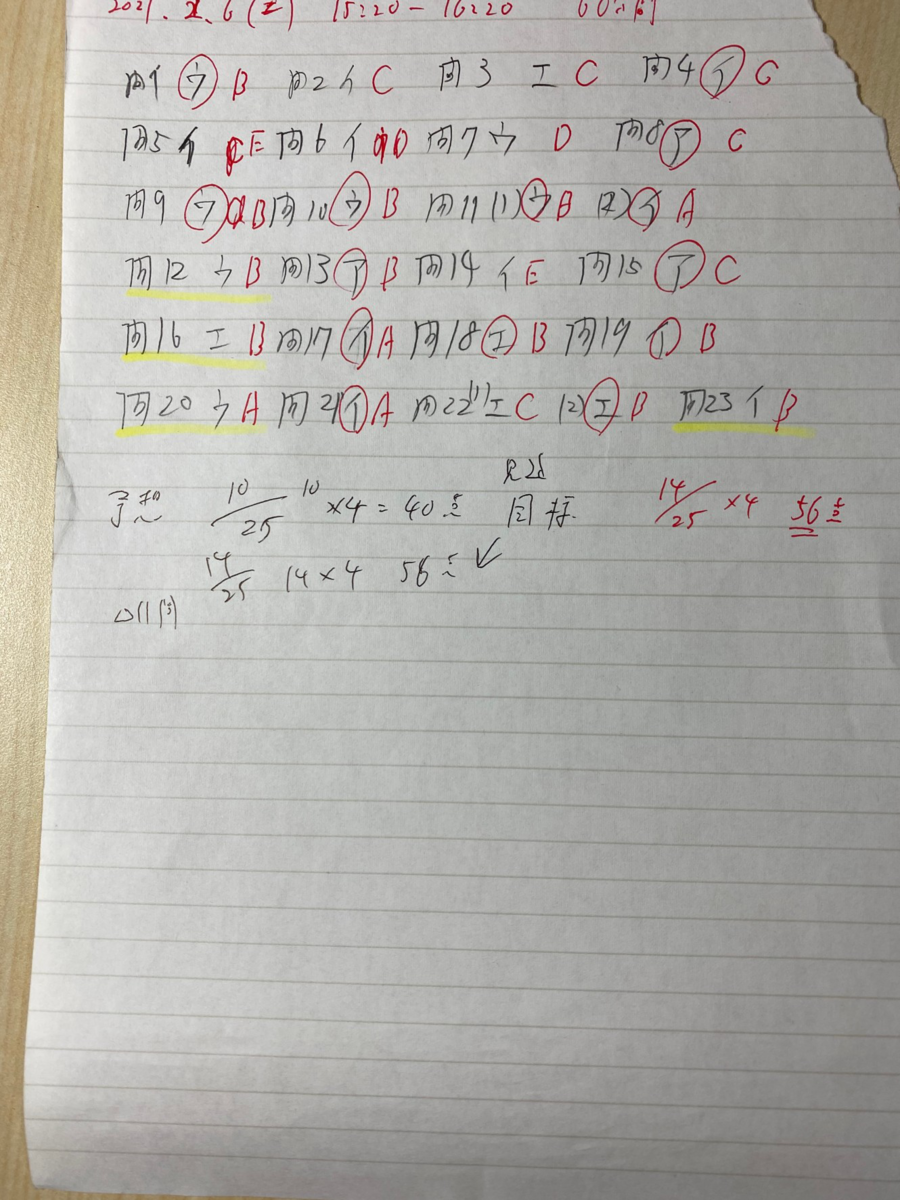 2021. 2. 6(土) 15:20 - 16:20 60分間
問1 ウ B 問2 イ C 問3 エ C 問4 イ C
問5 イ E 問6 イ D 問7 ウ D 問8 ア C
問9 ウ B 問10 ウ B 問11(1) ウ B (2) イ A
問12 ウ B 問13 ア B 問14 イ E 問15 ア C
問16 エ B 問17 イ A 問18 エ B 問19 イ B
問20 ウ A 問21 イ A 問22(1) エ C (2) エ B 問23 イ B
見直
予想 10/25 10×4=40点 同様 14/25 ×4 56点
14/25 14×4 56点